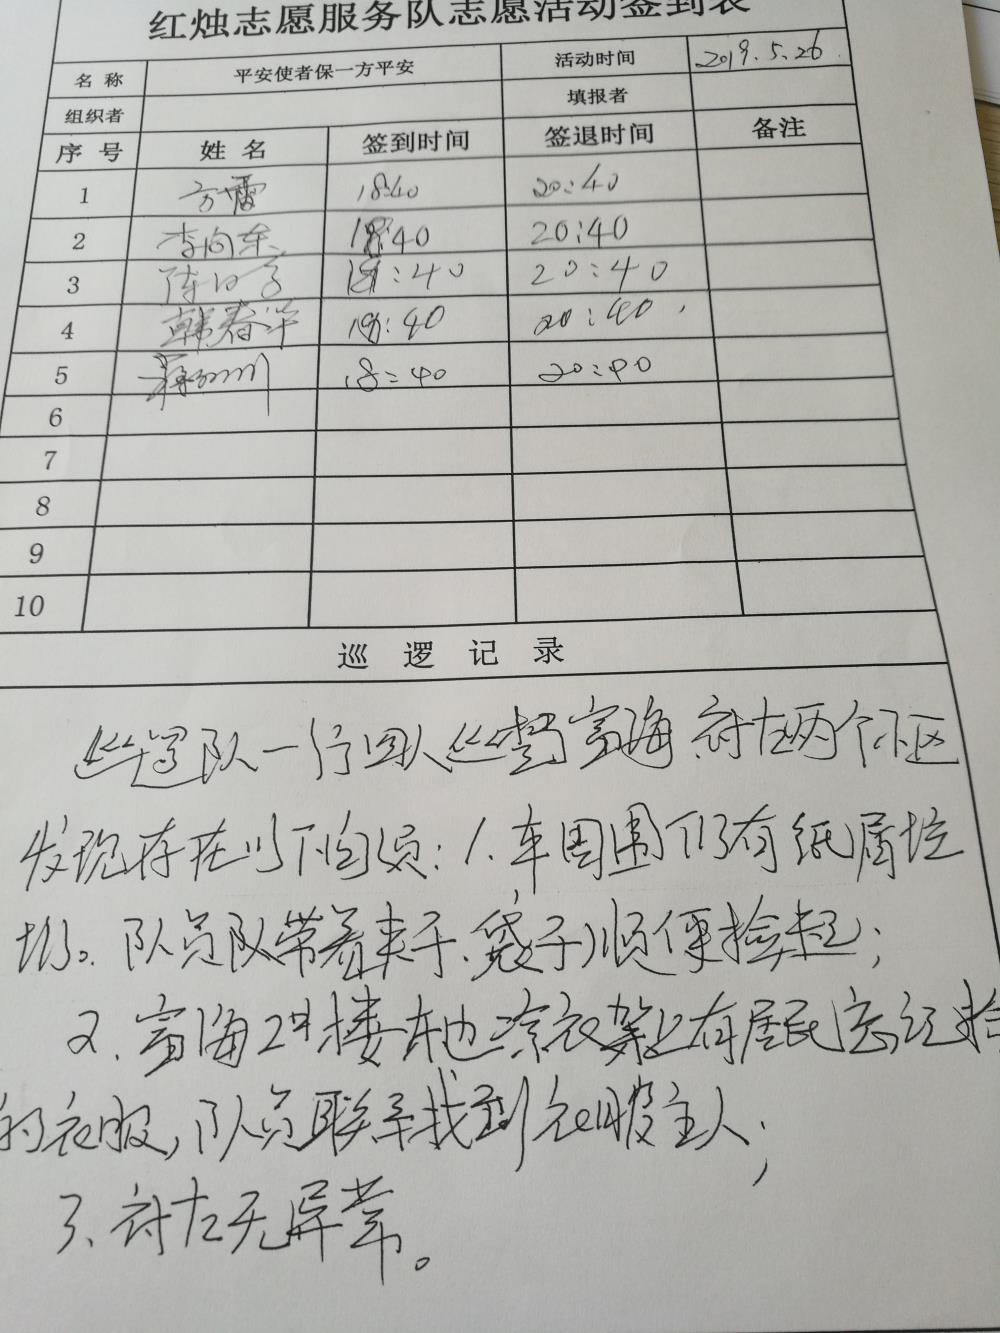 红烛志愿服务队志愿活动签到表
名 称 平安使者保一方平安 活动时间 2019.5.26.
组织者 填报者
序 号 姓 名 签到时间 签退时间 备注
1 方雷 18:40 20:40
2 李向东 18:40 20:40
3 18:40 20:40
4 韩春华 18:40 20:40
5 18:40 20:40
6
7
8
9
10
巡 逻 记 录
巡逻队一行四人巡逻富海 两个小区
发现存在以下问题:1.车周围仍有纸屑垃
圾。队员队带着夹子、袋子顺便捡起;
2.富海2#楼 晾衣架上有居民忘记拾
的衣服,队员联系找到衣服主人;
3、 无异常。